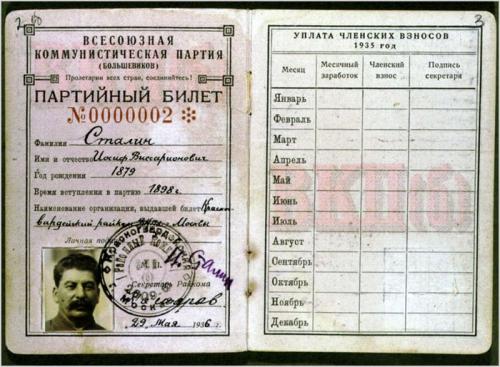 2
ВСЕСОЮЗНАЯ
КОММУНИСТИЧЕСКАЯ ПАРТИЯ
(БОЛЬШЕВИКОВ)
Пролетарии всех стран, соединяйтесь!
ПАРТИЙНЫЙ БИЛЕТ
№0000002
Фамилия Сталин
Имя и отчество Иосиф Виссарионович
Год рождения 1879
Время вступления в партию 1898г.
Наименование организации, выдавшей билет Красно-
гвардейский райком Москвы
Личная
И. Сталин
Секретарь Райкома
29 мая 1936 г.
3
УПЛАТА ЧЛЕНСКИХ ВЗНОСОВ
1935 год
Месяц Месячный заработок Членский взнос Подпись секретаря
Январь
Февраль
Март
Апрель
Май
Июнь
Июль
Август
Сентябрь
Октябрь
Ноябрь
Декабрь
ВКП(б)